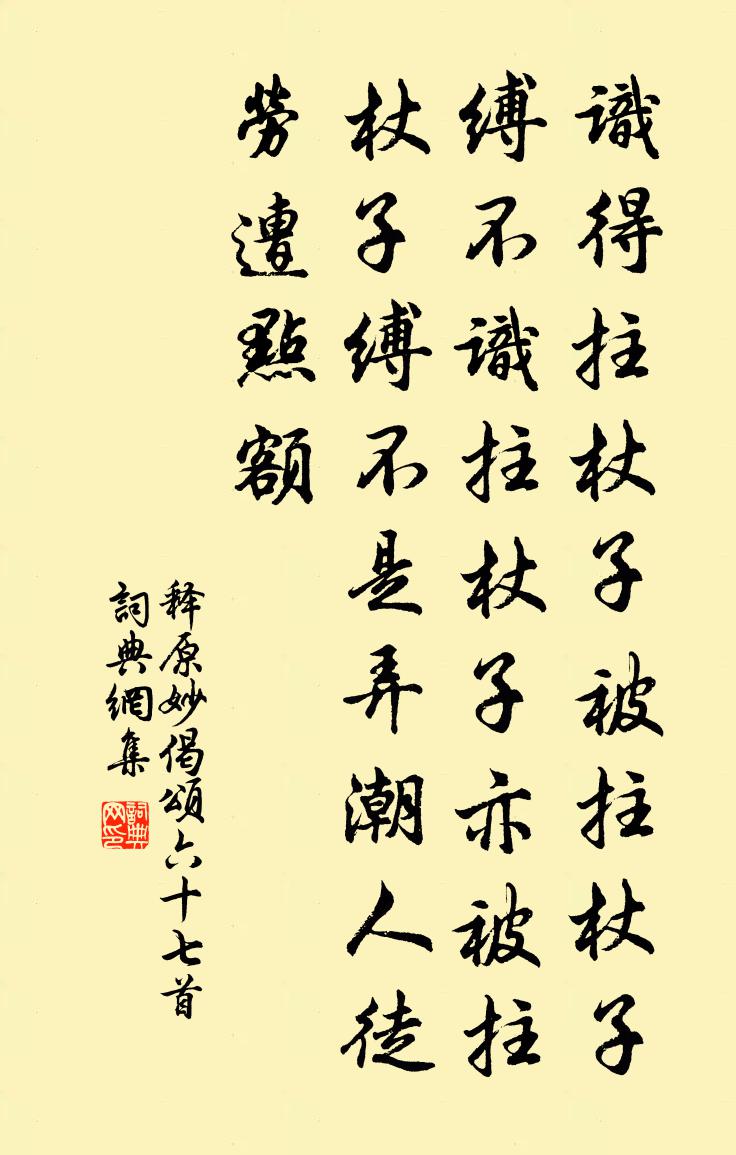 識得拄杖子被拄杖子
縛不識拄杖子亦被拄
杖子縛不是弄潮人徒
勞遭點額
释原妙偈頌六十七首
詞典網集
詞典網印